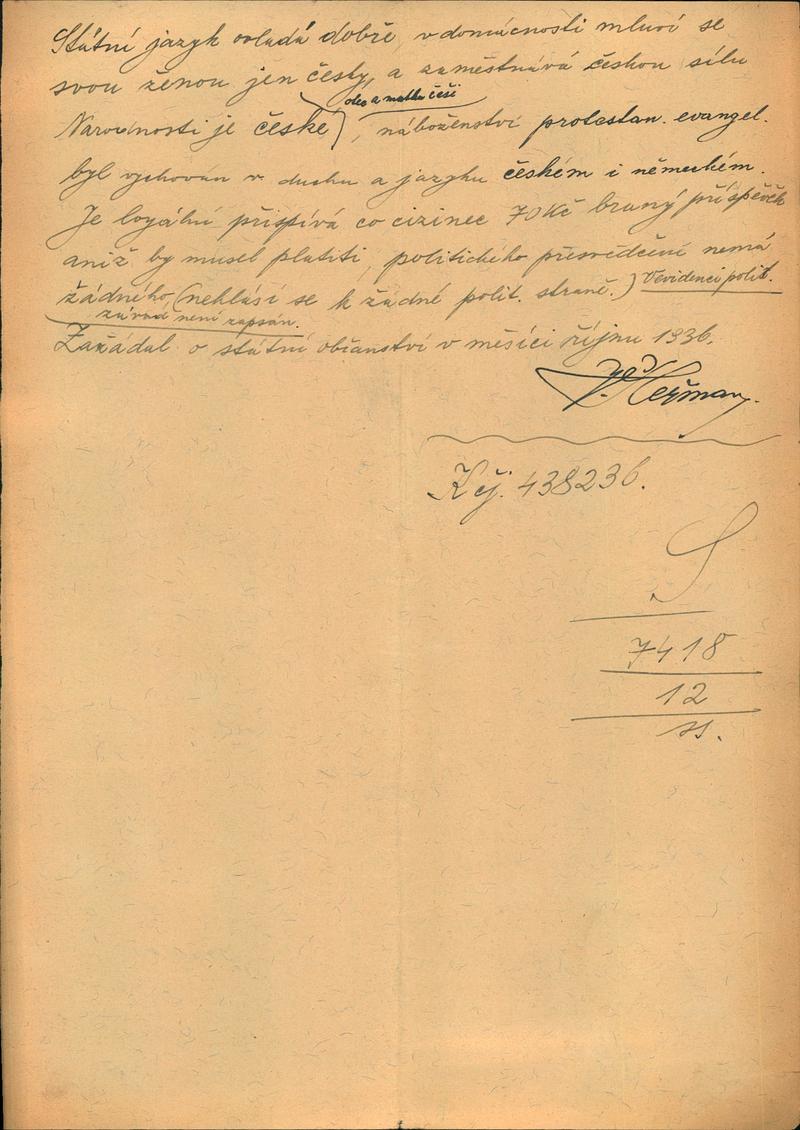 Státní jazyk ovládá dobře, v domácnosti mluví se
svou ženou jen česky, a zaměstnává českou sílu
otec a matka češi
Národnosti je české, náboženství protestan. evangel.
byl vychován v duchu a jazyku českém i německém.
Je loyální přispívá co cizinec 70 Kč braný příspěvěk
aniž by musel platiti, politického přesvědčení nemá
žádného, (nehlásí se k žádné polit. straně.) V evidenci polit.
závad není zapsán.
Zažádal o státní občanství v měsíci říjnu 1936.
Heřman.
K čj. 438236.
S
7418
12